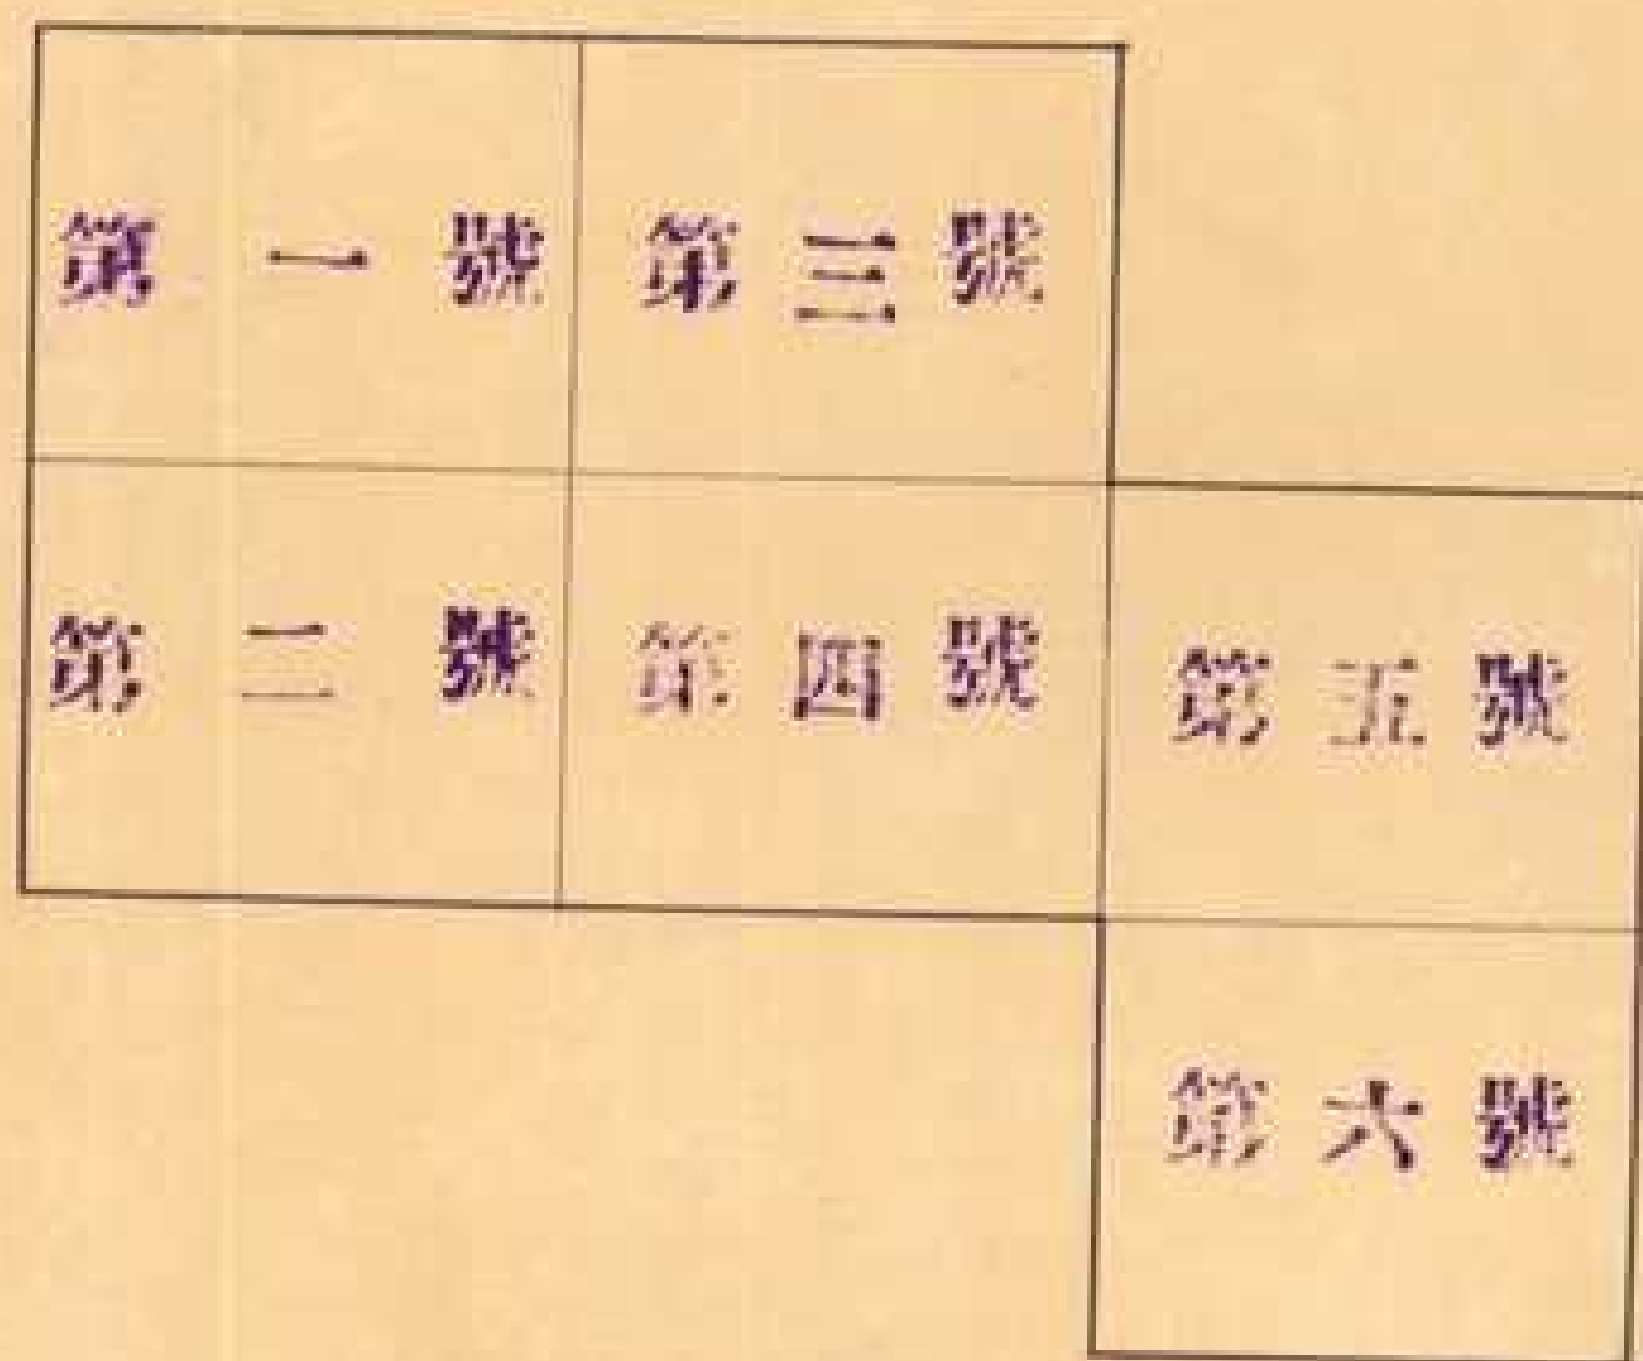 第一號
第三號
第二號
第四號
第五號
第六號